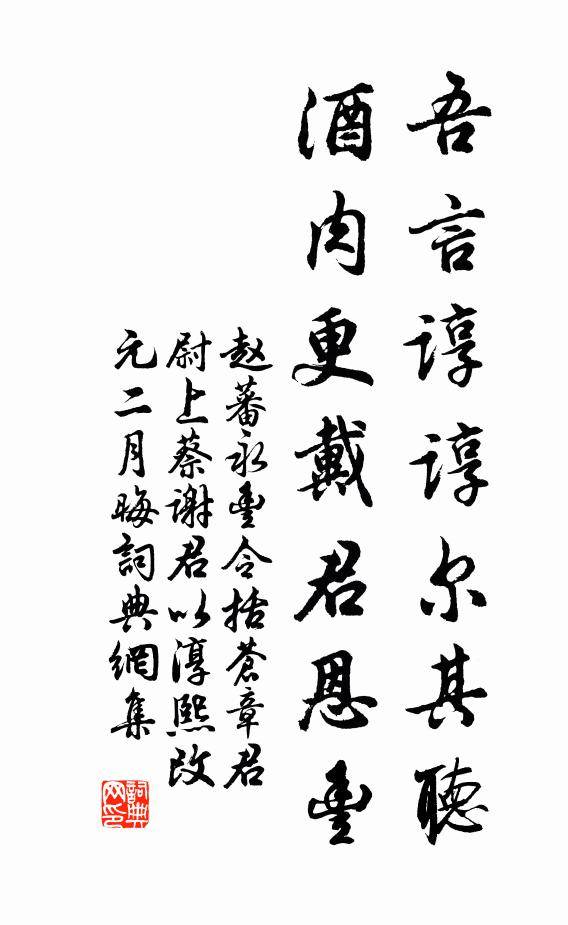 吾言諄諄尔其聽
酒肉更戴君恩豊
赵蕃永豊令括蒼章君
尉上蔡谢君以淳熙改
元二月晦詞典網集
詞典网印